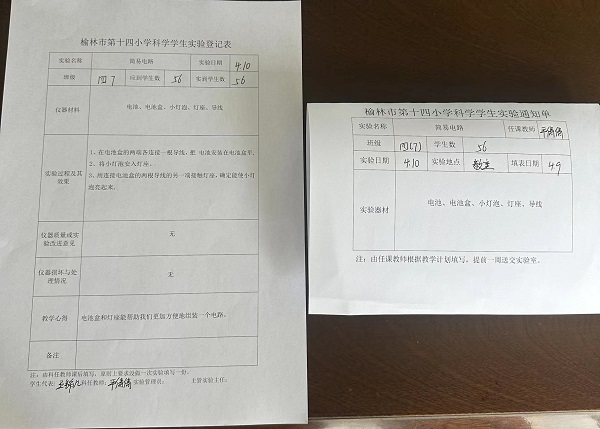 榆林市第十四小学科学学生实验登记表
实验名称 简易电路 实验日期 4.10
班级 四7 应到学生数 56 实到学生数 56
仪器材料 电池、电池盒、小灯泡、灯座、导线
实验过程及其效果
1、在电池盒的两端各连接一根导线，把 电池安装在电池盒里。
2、将小灯泡安入灯座。
3、用连接电池盒的两根导线的另一端接触灯座，确定能使小灯泡亮起来。
仪器质量或实验改进意见 无
仪器损坏与处理情况 无
教学心得 电池盒和灯座能帮助我们更加方便地组装一个电路。
备注
注：由科任教师课后填写，原则上要求没做一次实验填写一份。
学生代表： 科任教师： 实验管理员： 主管实验主任：
榆林市第十四小学科学学生实验通知单
实验名称 简易电路 任课教师
班级 四(7) 学生数 56
实验日期 4.10 实验地点 教室 填表日期 4.9
实验器材 电池、电池盒、小灯泡、灯座、导线
注：由任课教师根据教学计划填写，提前一周送交实验室。